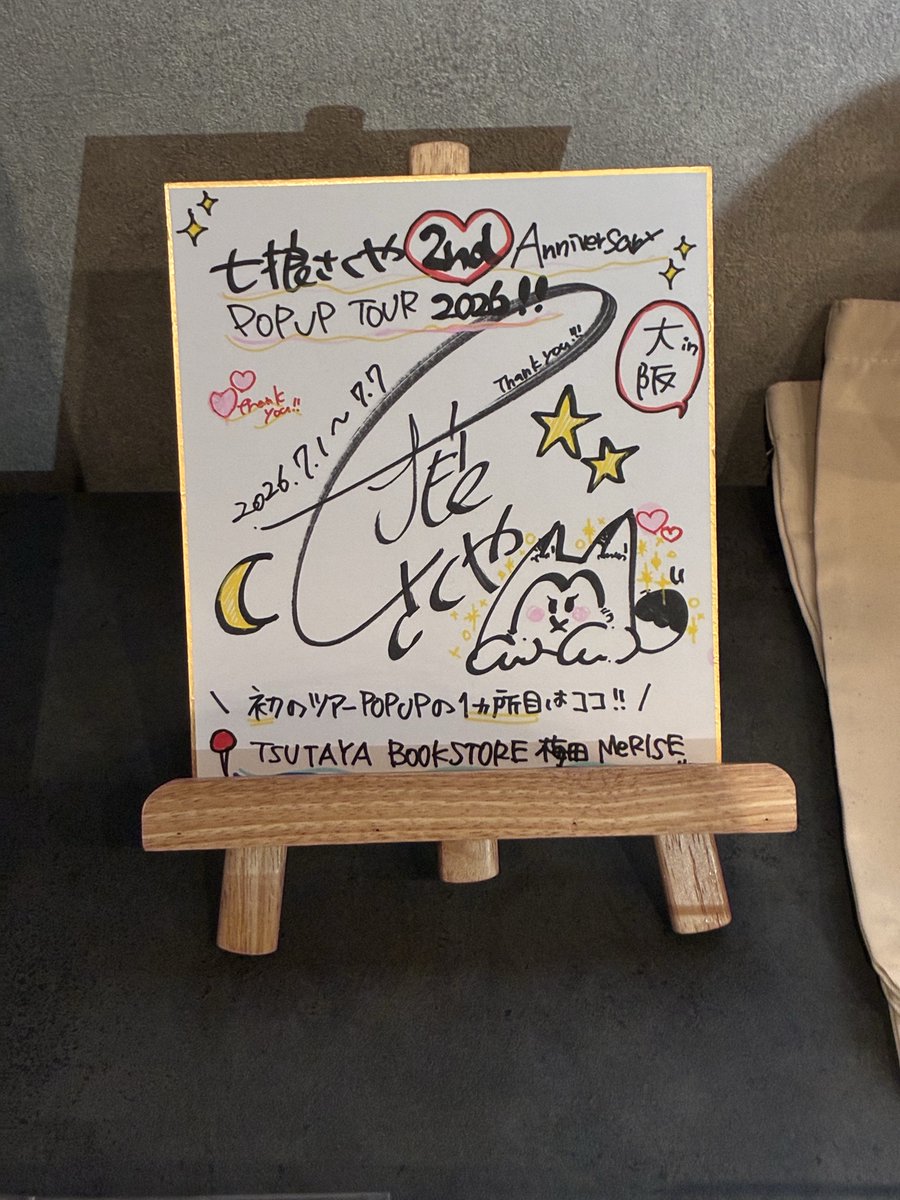 七根さくや 2nd Anniversary
POPUP TOUR 2026!!
in
大阪
Thank you!!
Thank you!!
2026.7.1~7.7
さくや
\ 初のツアーPOPUPの1ヵ所目はココ!! /
TSUTAYA BOOKSTORE 梅田 MeRISE